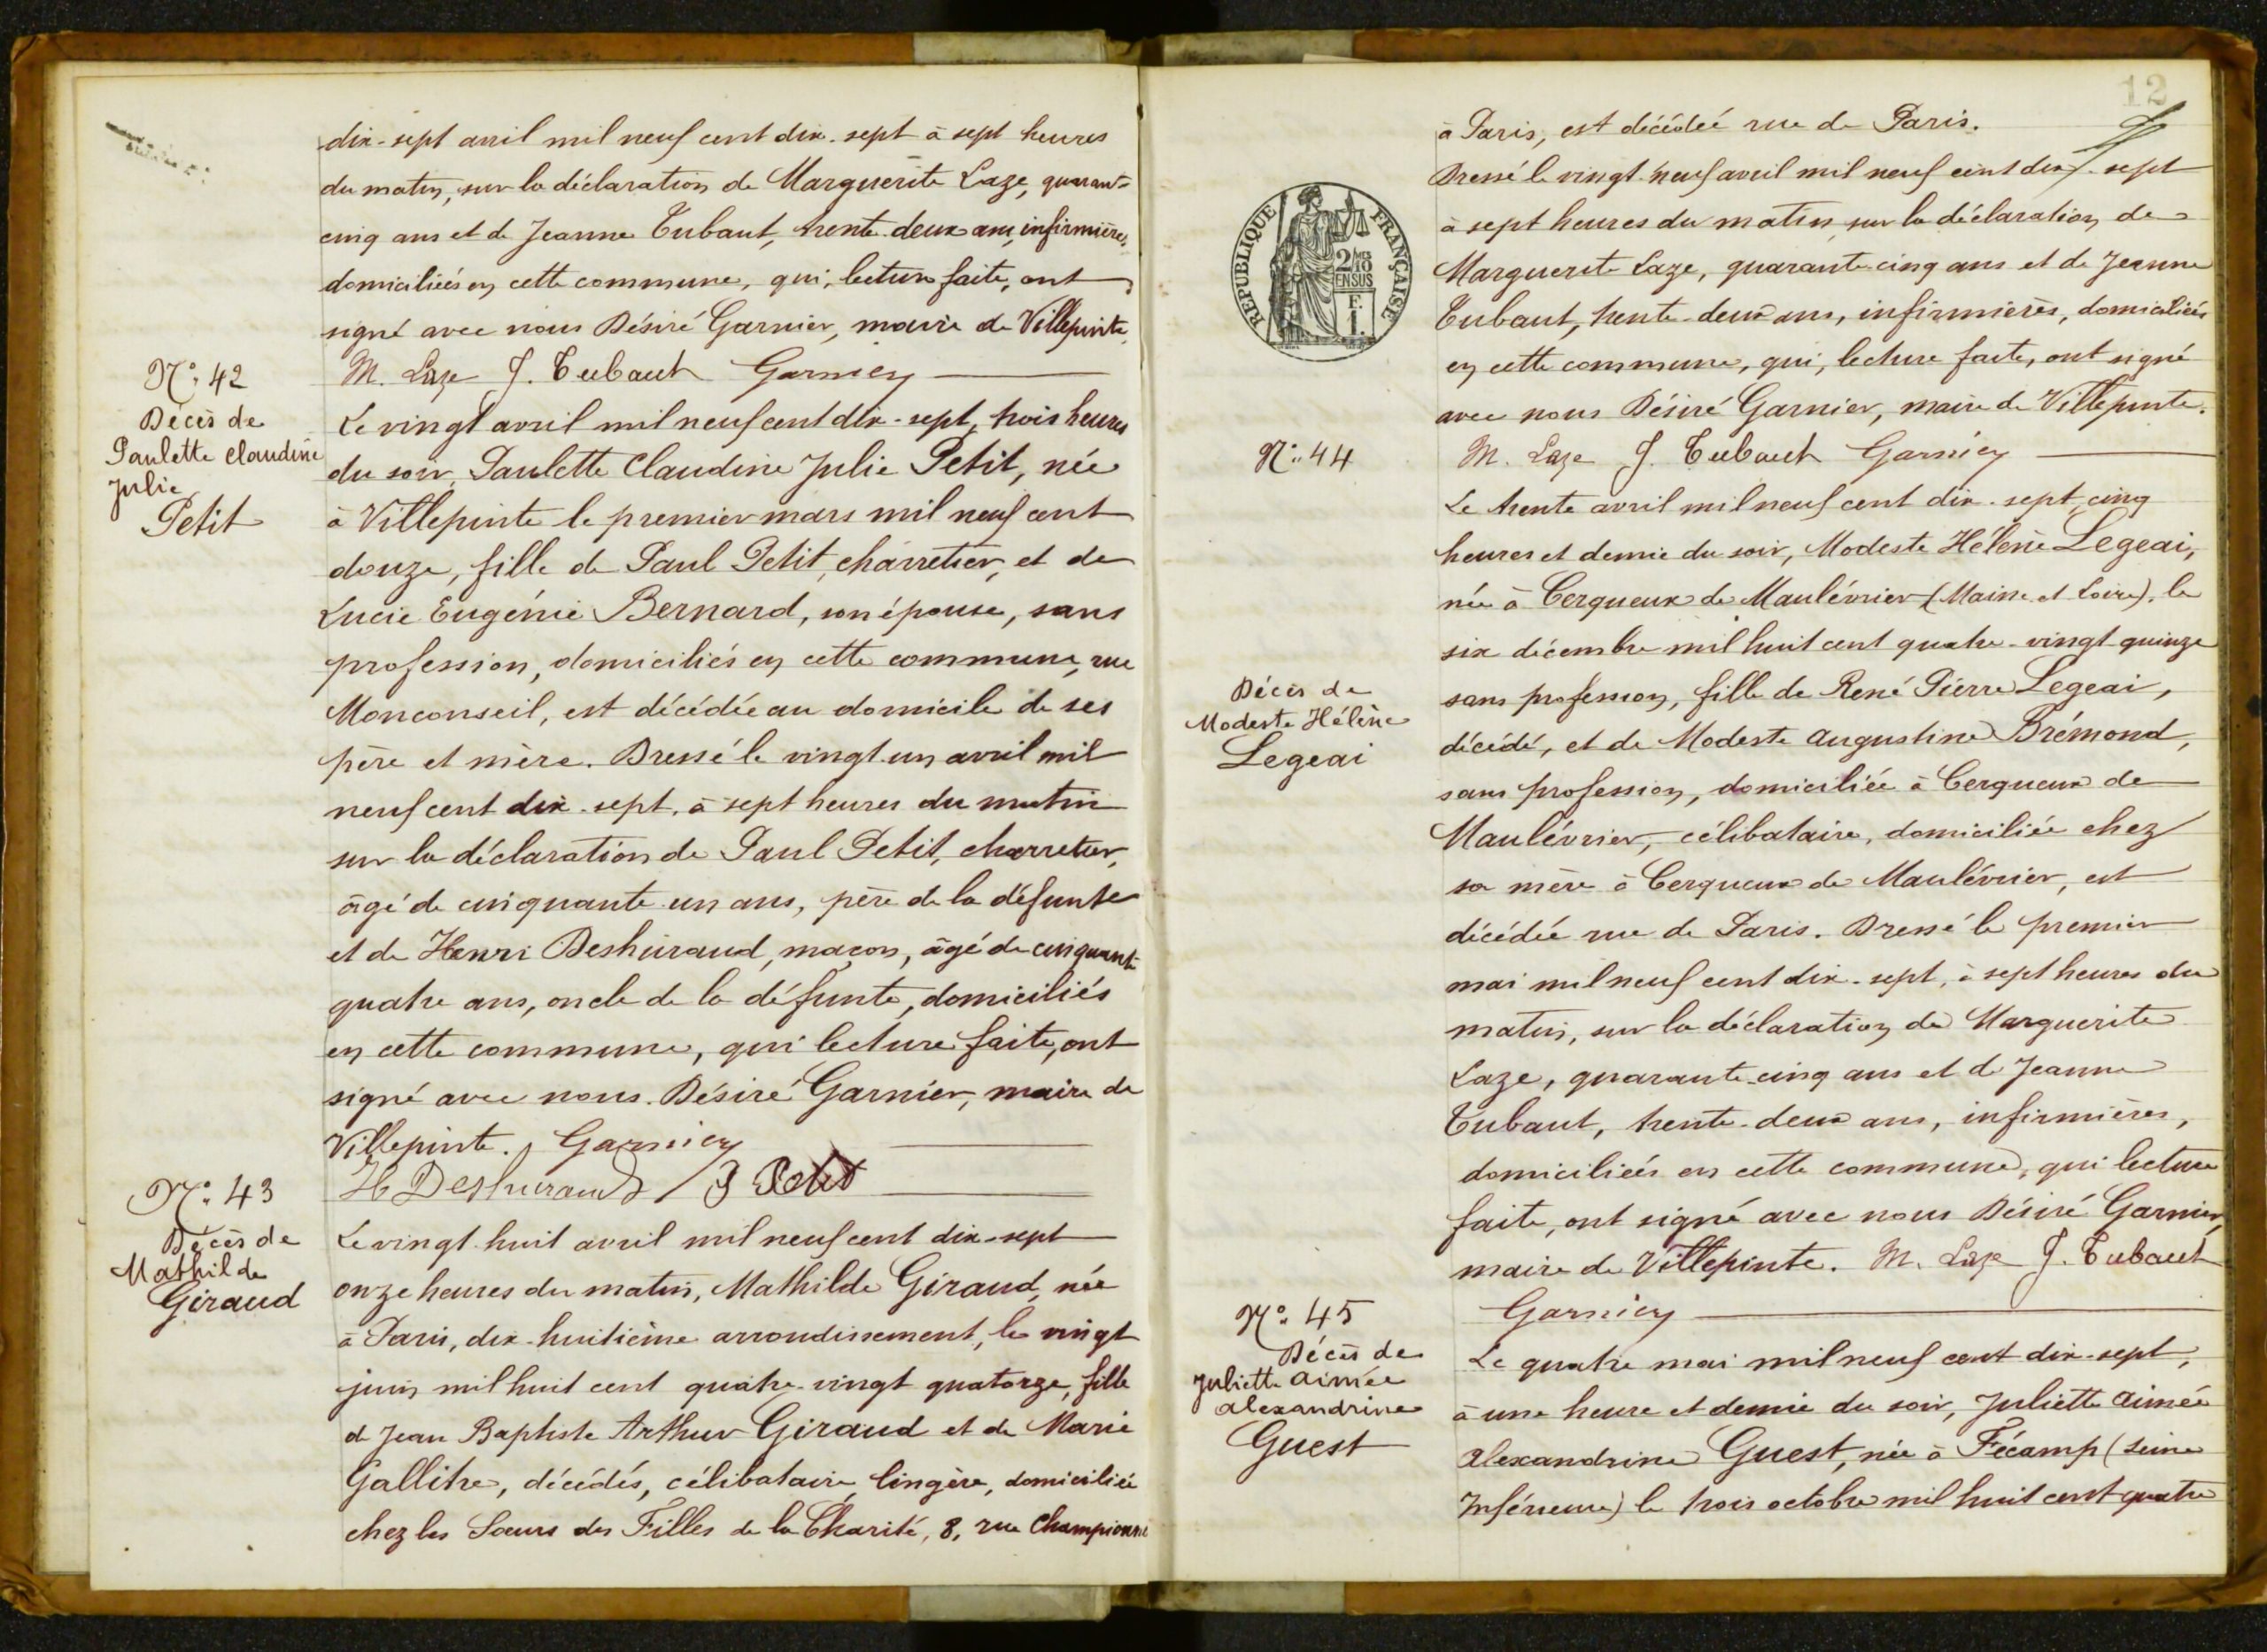 dix-sept avril mil neuf cent dix-sept à sept heures
du matin, sur la déclaration de Marguerite Laze, quarant-
cinq ans et de Jeanne Tubaut, trente-deux ans, infirmières,
domiciliées en cette commune, qui, lecture faite, ont
signé avec nous Désiré Garnier, maire de Villepinte.
M. Laze J. Tubaut Garnier
N° 42
Décès de
Paulette Claudine
Julie
Petit
Le vingt avril mil neuf cent dix-sept, trois heures
du soir, Paulette Claudine Julie Petit, née
à Villepinte le premier mars mil neuf cent
douze, fille de Paul Petit, charretier, et de
Lucie Eugénie Bernard, son épouse, sans
profession, domiciliés en cette commune, rue
Monconseil, est décédée au domicile de ses
père et mère. Dressé le vingt-un avril mil
neuf cent dix-sept, à sept heures du matin
sur la déclaration de Paul Petit, charretier,
âgé de cinquante-un ans, père de la défunte
et de Henri Deshuraud, maçon, âgé de cinquant-
quatre ans, oncle de la défunte, domiciliés
en cette commune, qui lecture faite, ont
signé avec nous Désiré Garnier, maire de
Villepinte. Garnier
H Deshuraud P Petit
N° 43
Décès de
Mathilde
Giraud
Le vingt-huit avril mil neuf cent dix-sept
onze heures du matin, Mathilde Giraud, née
à Paris, dix-huitième arrondissement, le vingt
juin mil huit cent quatre-vingt quatorze, fille
d Jean Baptiste Arthur Giraud et de Marie
Gallitre, décédés, célibataire, lingère, domiciliée
chez les Sœurs des Filles de la Charité, 8, rue Championnet
12
REPUBLIQUE FRANÇAISE
2/10 MES
EN SUS
F.
1.
à Paris, est décédée rue de Paris.
Dressé le vingt-neuf avril mil neuf cent dix-sept
à sept heures du matin sur la déclaration de
Marguerite Laze, quarante-cinq ans et de Jeanne
Tubaut, trente-deux ans, infirmières, domiciliées
en cette commune, qui, lecture faite, ont signé
avec nous Désiré Garnier, maire de Villepinte.
M. Laze J. Tubaut Garnier
N° 44
Décès de
Modeste Hélène
Legeai
Le trente avril mil neuf cent dix-sept, cinq
heures et demie du soir, Modeste Hélène Legeai,
née à Cerqueux de Maulévrier (Maine et Loire), le
six décembre mil huit cent quatre-vingt-quinze
sans profession, fille de René Pierre Legeai,
décédé, et de Modeste Augustine Brémond,
sans profession, domiciliée à Cerqueux de
Maulévrier, célibataire, domiciliée chez
sa mère à Cerqueux de Maulévrier, est
décédée rue de Paris. Dressé le premier
mai mil neuf cent dix-sept, à sept heures du
matin, sur la déclaration de Marguerite
Laze, quarante-cinq ans et de Jeanne
Tubaut, trente-deux ans, infirmières,
domiciliées en cette commune, qui lecture
faite, ont signé avec nous Désiré Garnier,
maire de Villepinte. M. Laze J. Tubaut
Garnier
N° 45
Décès de
Juliette Aimée
Alexandrine
Guest
Le quatre mai mil neuf cent dix-sept,
à une heure et demie du soir, Juliette Aimée
Alexandrine Guest, née à Fécamp (Seine
Inférieure) le trois octobre mil huit cent quatre